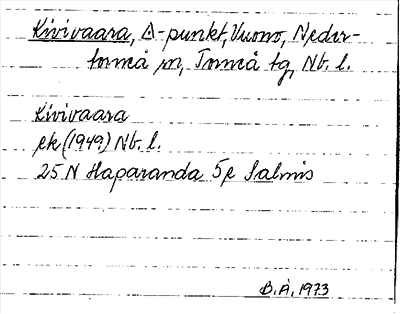 Kivivaara, Δ-punkt, Vuono, Neder-
torneå sn, Torneå tg, Nb. l.
Kivivaara
ek (1949) Nb. l.
25 N Haparanda 5e Salmis
B.Å. 1973